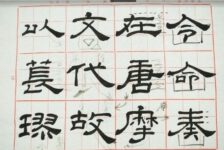 令命奏
在唐摩
文代故
以萇璆